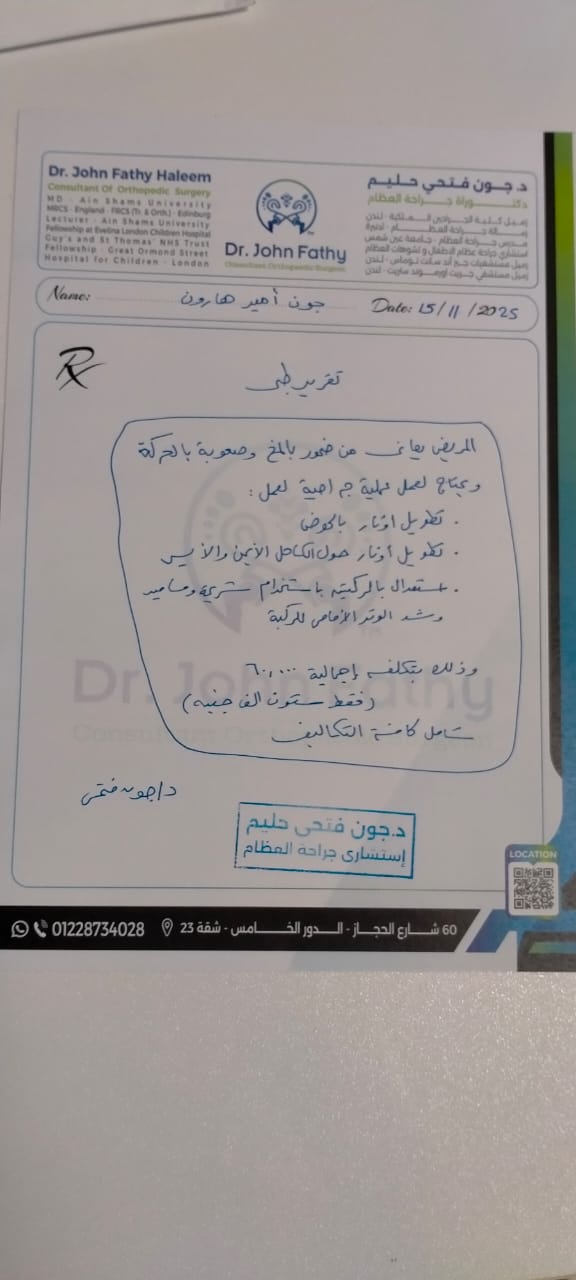 Dr. John Fathy Haleem
Consultant Of Orthopedic Surgery
MD - Ain Shams University
MRCS - England - FRCS (Tr. & Orth.) - Edinburg
Lecturer - Ain Shams University
Fellowship at Evelina London Children Hospital
Guy's and St Thomas' NHS Trust
Fellowship - Great Ormond Street
Hospital for Children - London
Dr. John Fathy
Consultant Orthopaedic Surgeon
د. جون فتحي حليم
دكتوراة جراحة العظام
زميل كلية الجراحين الملكية - لندن
زمالة جراحة العظام - ادنبرة
مدرس جراحة العظام - جامعة عين شمس
استشاري جراحة عظام الاطفال و تشوهات العظام
زميل مستشفيات جيز أند سانت توماس - لندن
زميل مستشفي جريت اورموند ستريت - لندن
Name: جون أمير هارون
Date: 15/11/2025
Rx
تقرير طبى
المريض يعانى من ضمور بالمخ وصعوبة بالحركة
ويحتاج لعمل عملية جراحية لعمل:
. تطويل أوتار بالحوض
. تطويل أوتار حول الكاحل الأيمن والأيسر
. استعدال بالركبتين باستخدام شريحة ومسامير
وشد الوتر الأمامى للركبة
وذلك بتكلفه إجمالية ٦٠,٠٠٠
(فقط ستون الف جنيه)
شامل كافة التكاليف
د/جون فتحى
د.جون فتحى حليم
إستشارى جراحة العظام
Dr. John Fathy
LOCATION
01228734028
60 شارع الحجاز - الدور الخامس - شقة 23